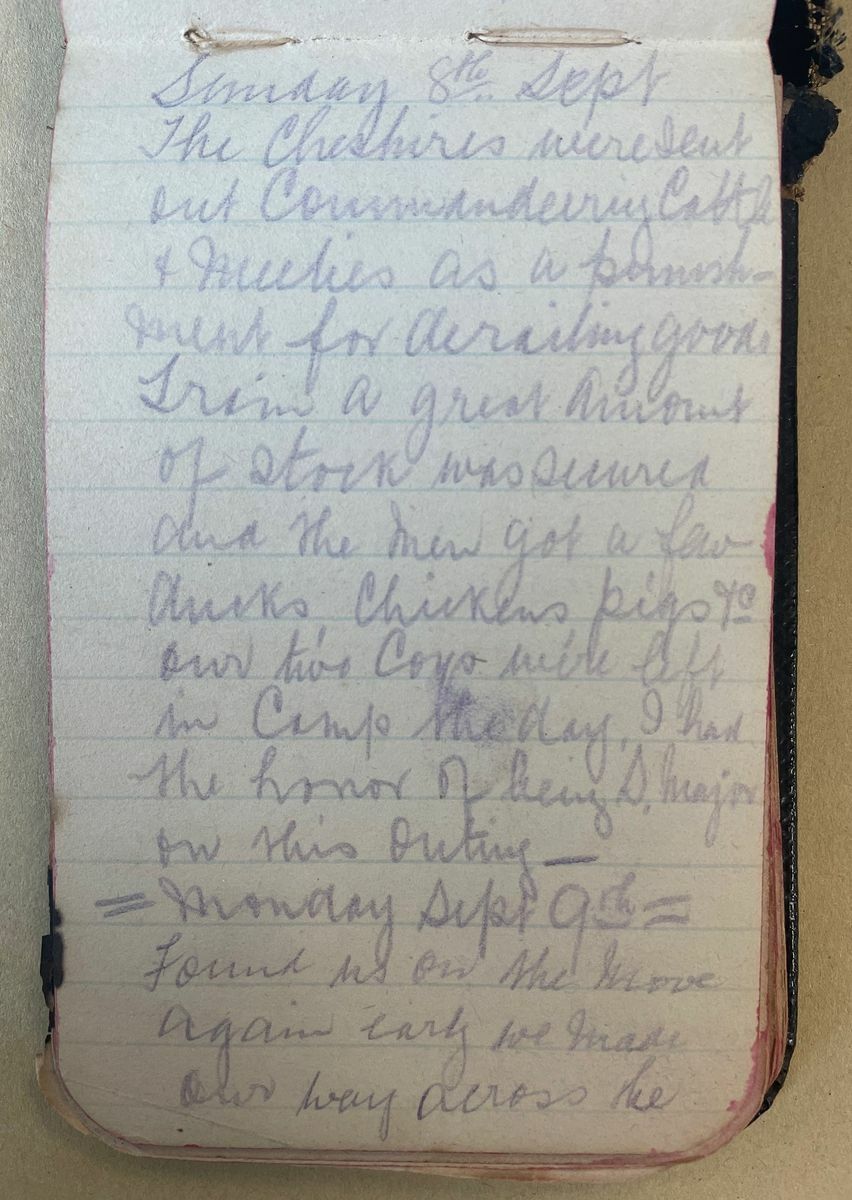 Sunday 8th Sept
The Cheshires were sent
out Commandeering Cattle
& Meelies as a punish-
ment for derailing goods
Train a great amount
of stock was secured
and the men got a few
ducks Chickens pigs &c
our two Coys were left
in Camp the day, I had
the honor of being S. Major
on this Outing —
= Monday Sept 9th =
Found us on the move
again early we made
our way across the